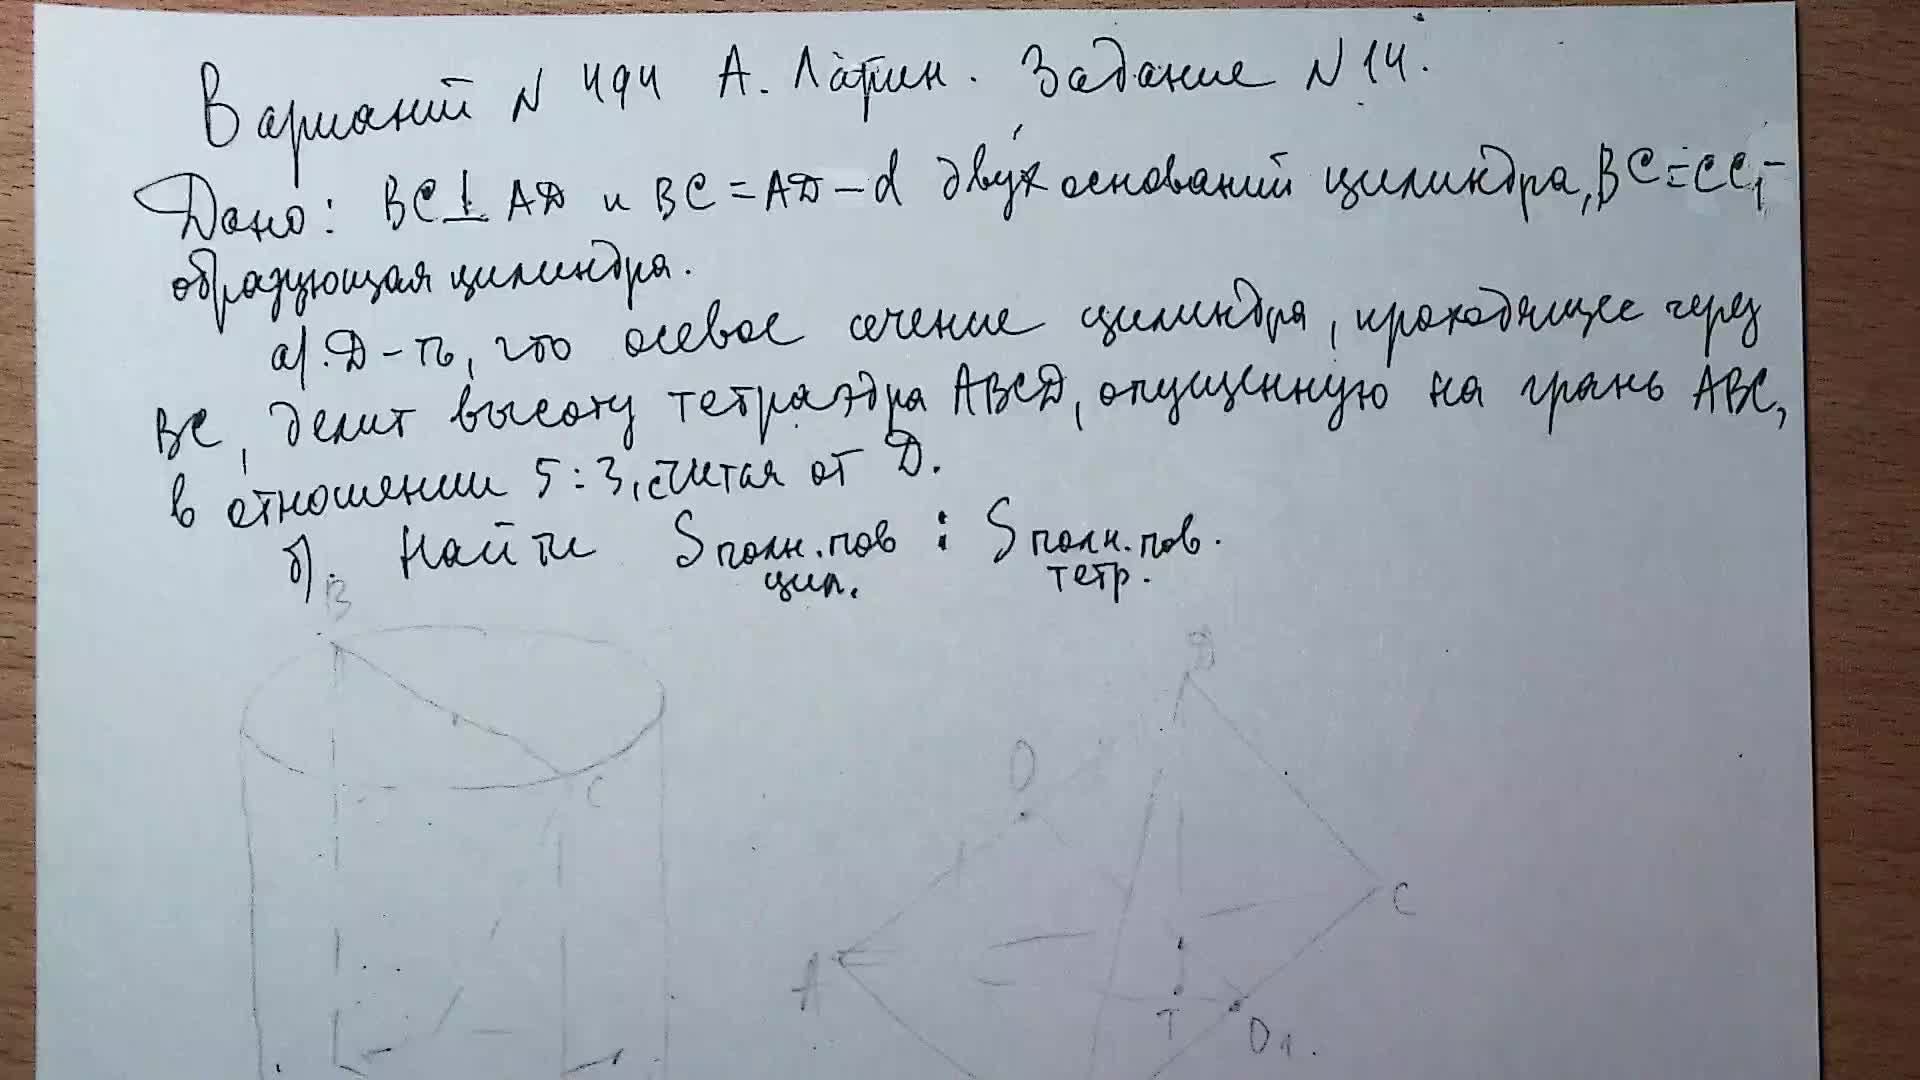 Вариант N 494 А. Ларин. Задание N 14.
Дано: BC ⊥ AD и BC = AD – d двух оснований цилиндра, BC = CC₁ –
образующая цилиндра.
а). Д-ть, что осевое сечение цилиндра, проходящее через
BC, делит высоту тетраэдра ABCD, опущенную на грань ABC,
в отношении 5:3, считая от D.
б). Найти S полн. пов : S полн. пов.
цил. тетр.
B
D
O
C
C
A
T
O₁.